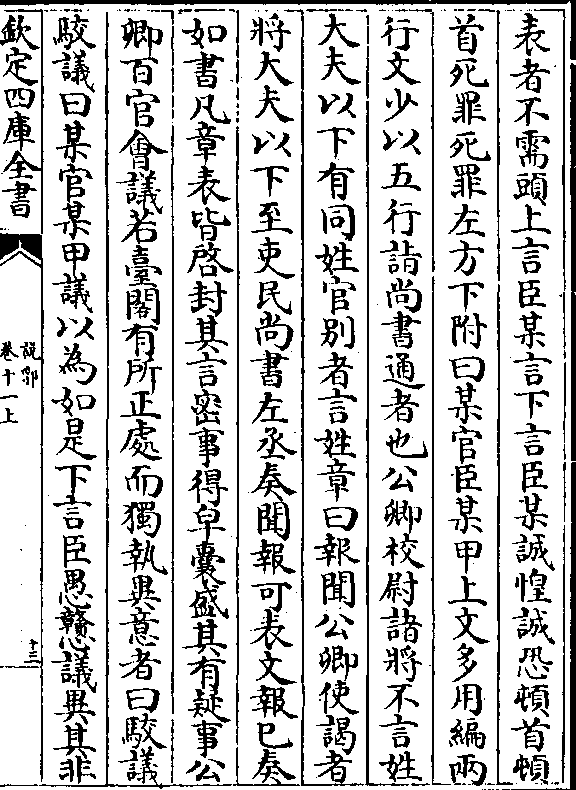 表者不需頭上言臣某言下言臣某誠惶誠恐頓首頓
首死罪死罪左方下附曰某官臣某甲上文多用編兩
行文少以五行詣尚書通者也公卿校尉諸將不言姓
大夫以下有同姓官别者言姓章曰報聞公卿使謁者
將大夫以下至吏民尚書左丞奏聞報可表文報已奏
如書凡章表皆啓封其言密事得皁囊盛其有疑事公
卿百官會議若臺閣有所正處而獨執異意者曰駮議
駮議曰某官某甲議以為如是下言臣愚戇議異其非
欽定四庫全書
說郛
卷十一上
十三